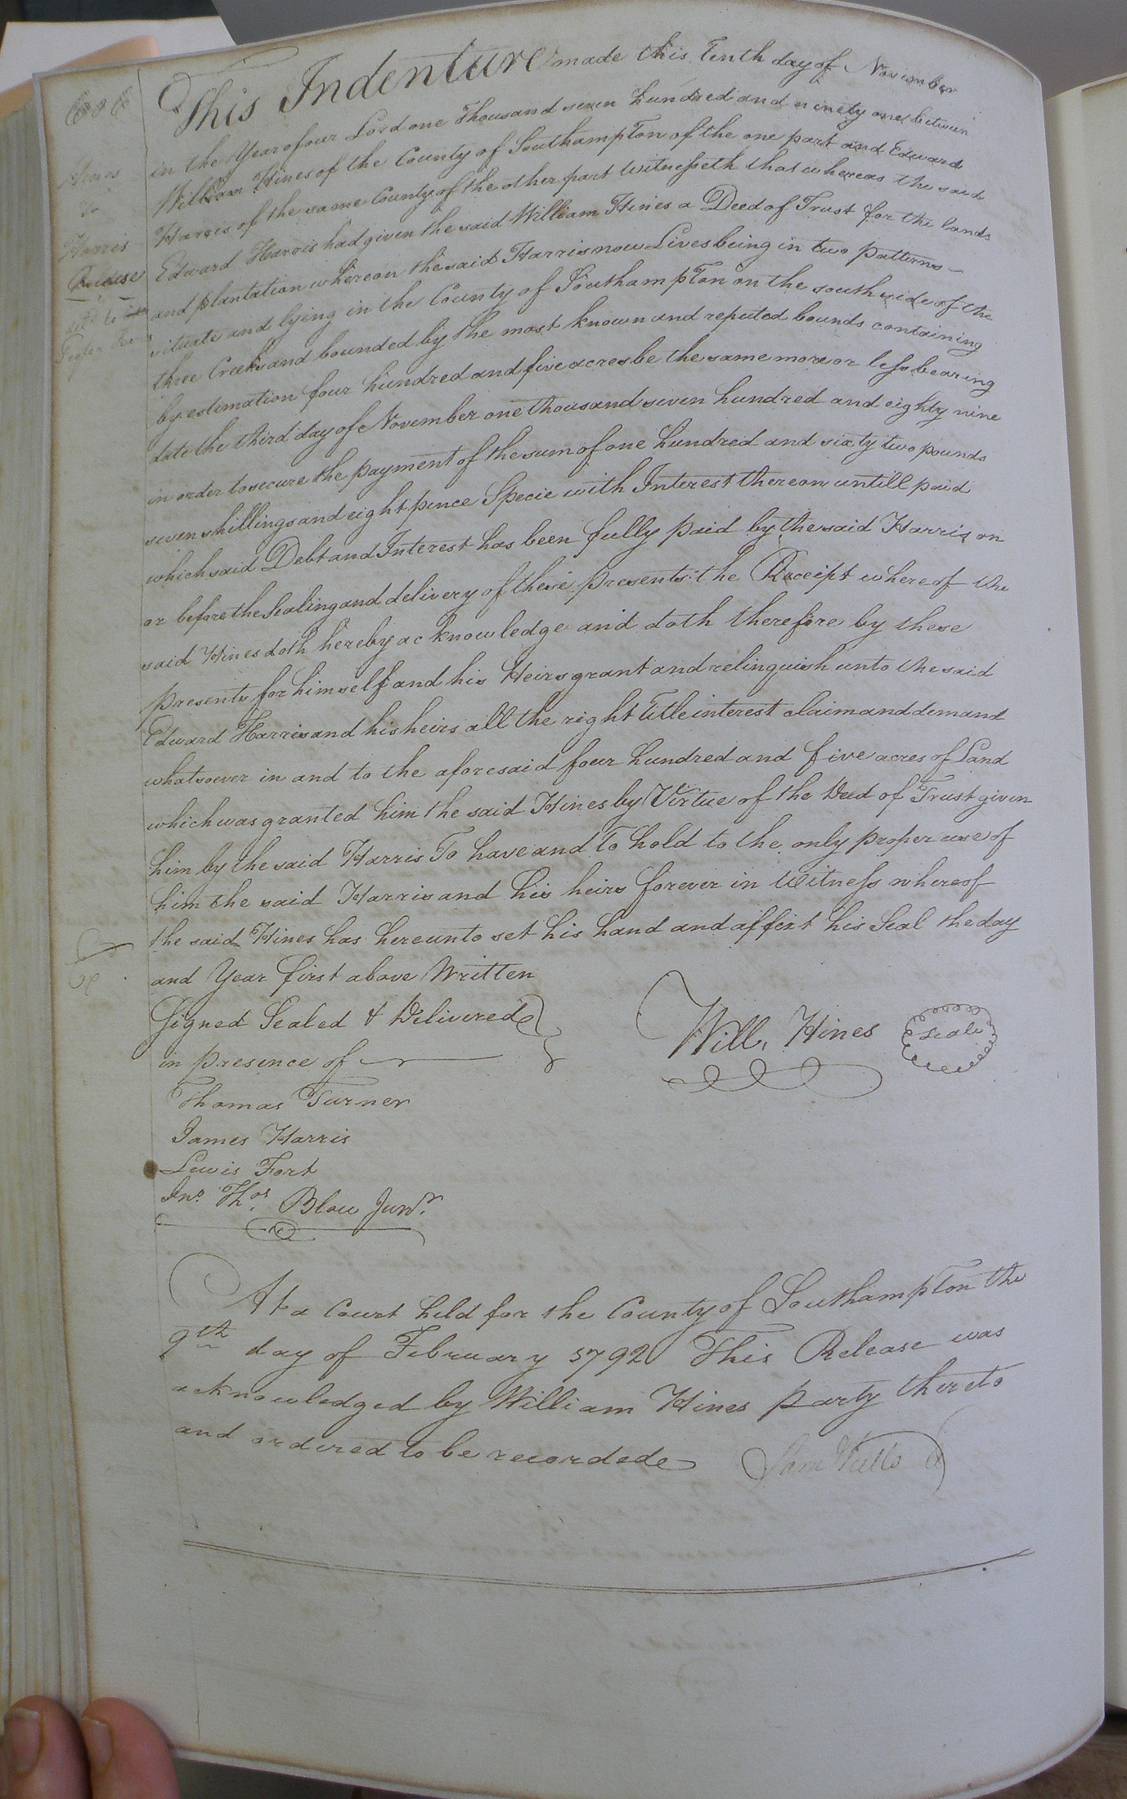 Hines
to
Harris
Release
This Indenture made this Tenth day of November
in the Year of our Lord one Thousand seven hundred and ninety one between
William Hines of the County of Southampton of the one part and Edward
Harris of the same County of the other part witnesseth that whereas the said
Edward Harris had given the said William Hines a Deed of Trust for the lands
and plantation whereon the said Harris now Lives being in two patterns
situate and lying in the County of Southampton on the south side of the
three Creeks and bounded by the most known and reputed bounds containing
by estimation four hundred and five acres be the same more or less bearing
date the third day of November one thousand seven hundred and eighty nine
in order to secure the payment of the sum of one hundred and sixty two pounds
seven shillings and eight pence Specie with Interest thereon untill paid
which said Debt and Interest has been fully paid by the said Harris on
or before the Sealing and delivery of these presents the Receipt whereof the
said Hines doth hereby acknowledge and doth therefore by these
presents for himself and his Heirs grant and relinquish unto the said
Edward Harris and his heirs all the right Title interest claim and demand
whatsoever in and to the aforesaid four hundred and five acres of Land
which was granted him the said Hines by Virtue of the Deed of Trust given
him by the said Harris To have and To hold to the only proper use of
him the said Harris and his heirs forever in Witness whereof
the said Hines has hereunto set his hand and affixt his Seal the day
and Year first above Written
Signed Sealed & Delivered
in presence of
Will. Hines Seal
Thomas Turner
James Harris
Lewis Fort
Jno. Thos. Blow Junr.
At a Court held for the County of Southampton the
9th day of February 1792 This Release was
acknowledged by William Hines party thereto
and ordered to be recorded
Sam Kello